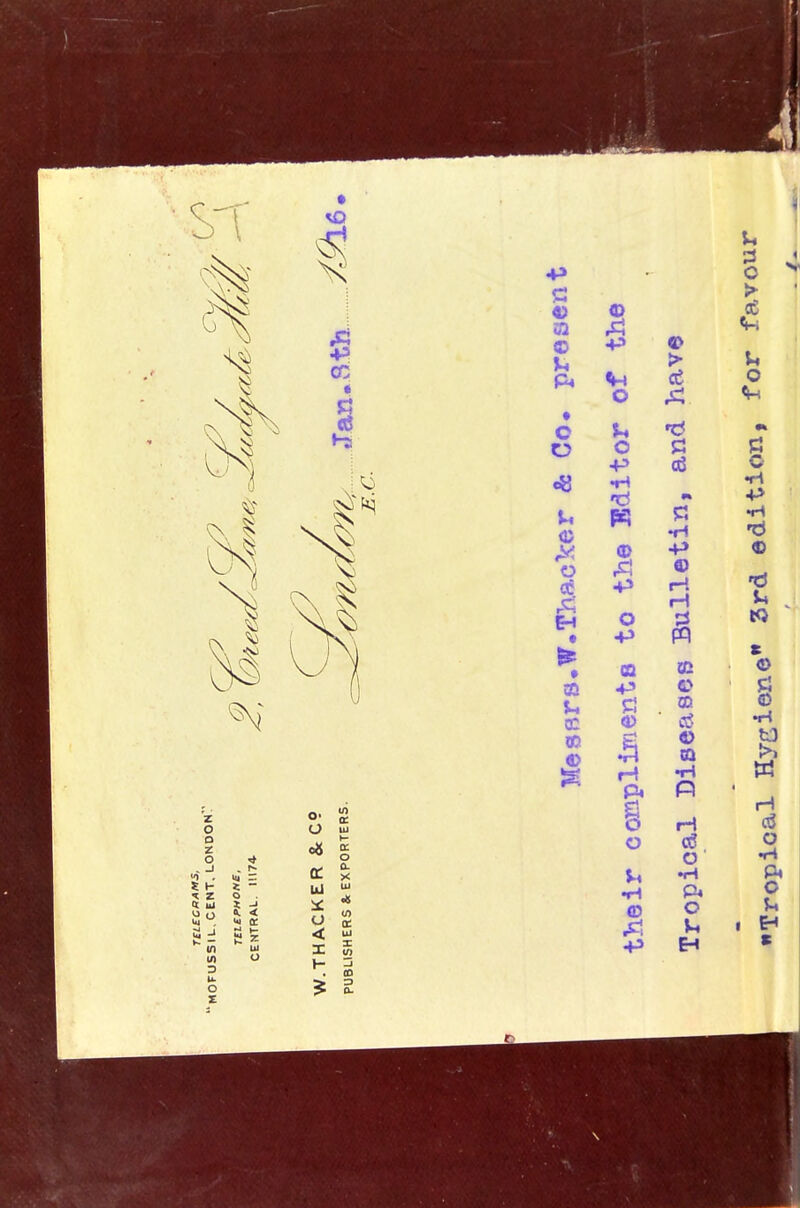 TELEGRAMS,
"MOFUSSIL, CENT, LONDON".
TELEPHONE,
CENTRAL. 11174.
W. THACKER & Co.
PUBLISHERS & EXPORTERS.
2, Creed Lane, Ludgate Hill, ST
London, Jan.8th 1916.
E.C.
Messrs.W.Thacker & Co. present
their compliments to the Editor of the
Tropical Diseases Bulletin, and have
"Tropical Hygiene" 3rd edition, for favour